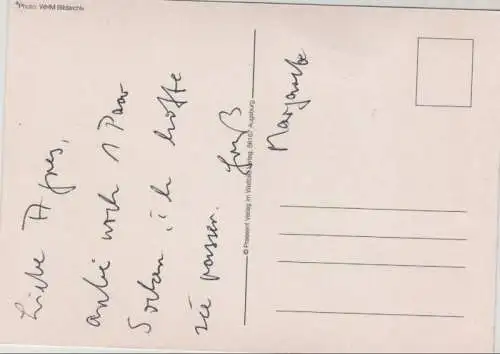 Photo: WHM Bildarchiv
Liebe Agnes,
anbei noch 1 Paar
Socken, ich hoffe
sie passen.
Gruß
Margarethe
© Präsent Verlag im Weltbild Verlag, 86167 Augsburg